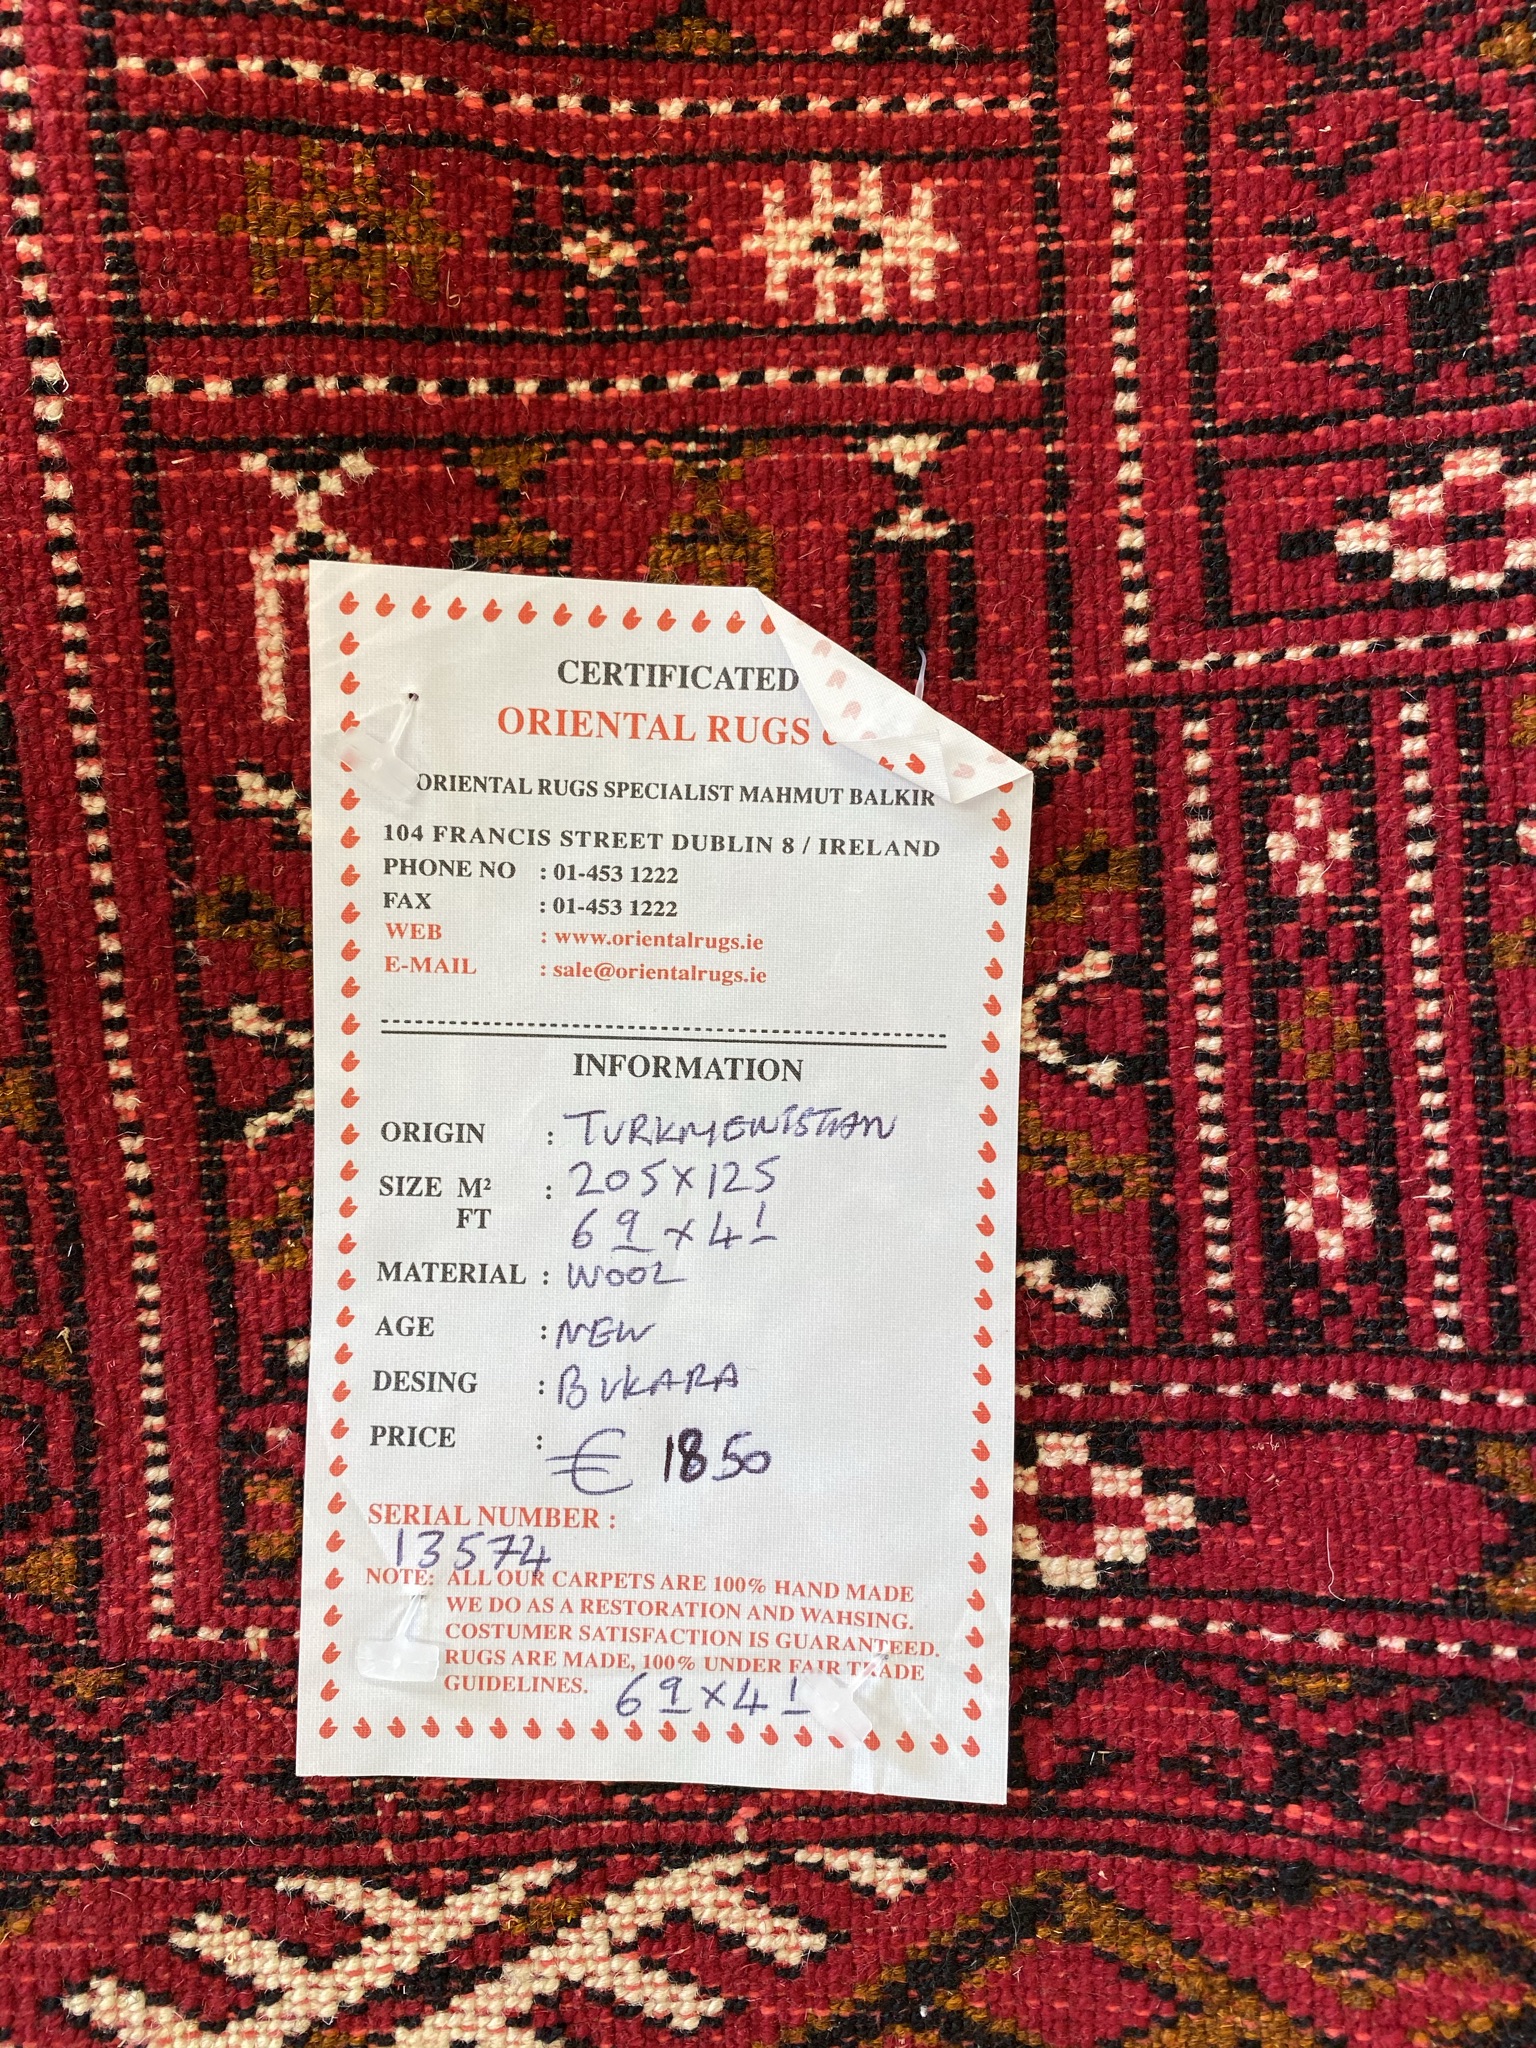 CERTIFICATED
ORIENTAL RUGS
ORIENTAL RUGS SPECIALIST MAHMUT BALKIR
104 FRANCIS STREET DUBLIN 8 / IRELAND
PHONE NO : 01-453 1222
FAX : 01-453 1222
WEB : www.orientalrugs.ie
E-MAIL : sale@orientalrugs.ie
INFORMATION
ORIGIN : TURKMENISTAN
SIZE M² : 205 x 125
FT 6 9 x 4 1
MATERIAL : WOOL
AGE : NEW
DESING : BUKARA
PRICE : € 1850
SERIAL NUMBER :
13574
NOTE: ALL OUR CARPETS ARE 100% HAND MADE
WE DO AS A RESTORATION AND WAHSING.
COSTUMER SATISFACTION IS GUARANTEED.
RUGS ARE MADE, 100% UNDER FAIR TRADE
GUIDELINES. 6 9 x 4 1